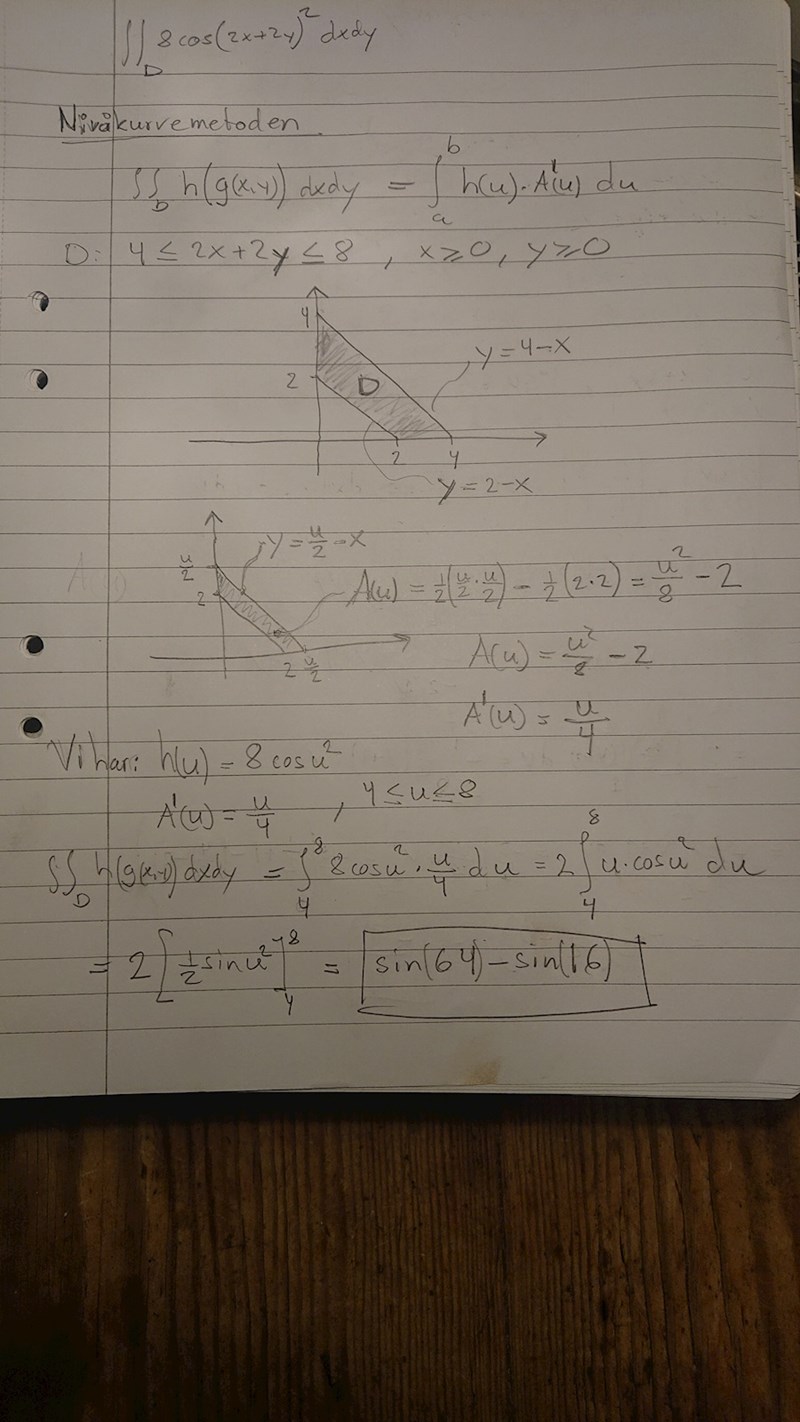 ∬_D 8cos(2x+2y)² dxdy
Nivåkurvemetoden
∬_D h(g(x,y)) dxdy = ∫_a^b h(u)·A'(u) du
D: 4 ≤ 2x+2y ≤ 8 , x≥0, y≥0
4
y=4-x
2
D
2 4
y=2-x
y=u/2-x
u/2
2
A(u) = 1/2(u/2·u/2) - 1/2(2·2) = u²/8 - 2
A(u) = u²/8 - 2
2 u/2
A'(u) = u/4
Vi har: h(u) = 8cosu²
A'(u) = u/4 , 4≤u≤8
∬_D h(g(x,y)) dxdy = ∫_4^8 8cosu²·u/4 du = 2∫_4^8 u·cosu² du
= 2[1/2 sinu²]_4^8 = sin(64)-sin(16)